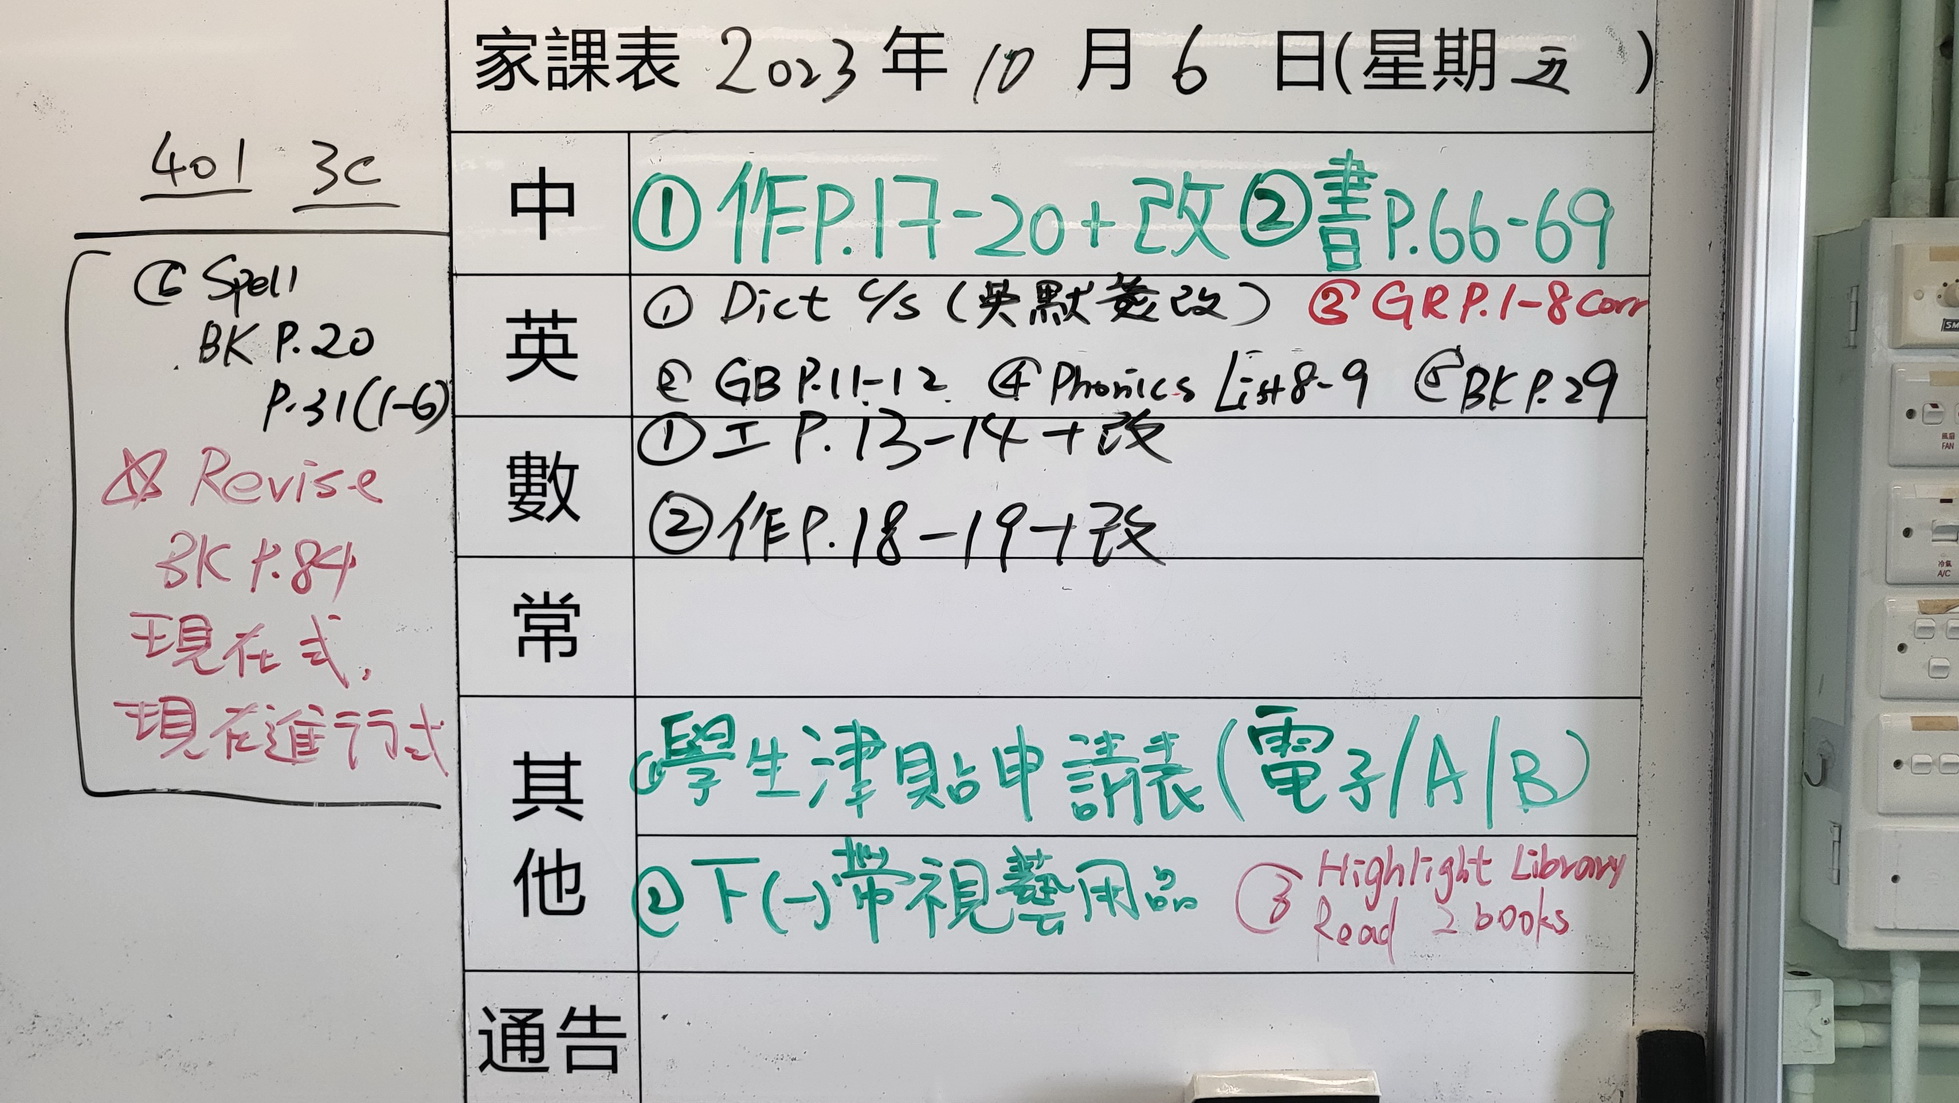 家課表 2023 年 10 月 6 日(星期 五 )
401 3C
中
① 作P.17-20+改 ② 書P.66-69
英
① Dict c/s (英默簽改) ③ GR P.1-8 corr
② GB P.11-12 ④ Phonics List 8-9 ⑤ BK P.29
⑥ Spell
BK P.20
P.31(1-6)
☆ Revise
BK P.84
現在式,
現在進行式
數
① 工 P.13-14+改
② 作P.18-19+改
常
其他
① 學生津貼申請表(電子/A/B)
② 下(一)帶視藝用品 ③ Highlight Library
Read 2 books
通告
FAN
A/C